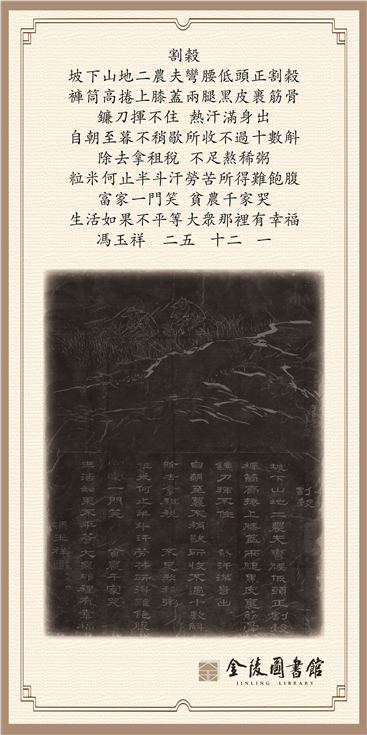 割穀
坡下山地二農夫彎腰低頭正割穀
褲筒高捲上膝蓋兩腿黑皮裹筋骨
鐮刀揮不住 熱汗滿身出
自朝至暮不稍歇所收不過十數斛
除去拿租稅 不足熬稀粥
粒米何止半斗汗勞苦所得難飽腹
富家一門笑 貧農千家哭
生活如果不平等大眾那裡有幸福
馮玉祥 二五 十二 一
割穀
坡下山地二農夫彎腰低頭正割穀
褲筒高捲上膝蓋兩腿黑皮裹筋骨
鐮刀揮不住 熱汗滿身出
自朝至暮不稍歇所收不過十數斛
除去拿租稅 不足熬稀粥
粒米何止半斗汗勞苦所得難飽腹
富家一門笑 貧農千家哭
生活如果不平等大眾那裡有幸福
馮玉祥
金陵圖書館
JINLING LIBRARY